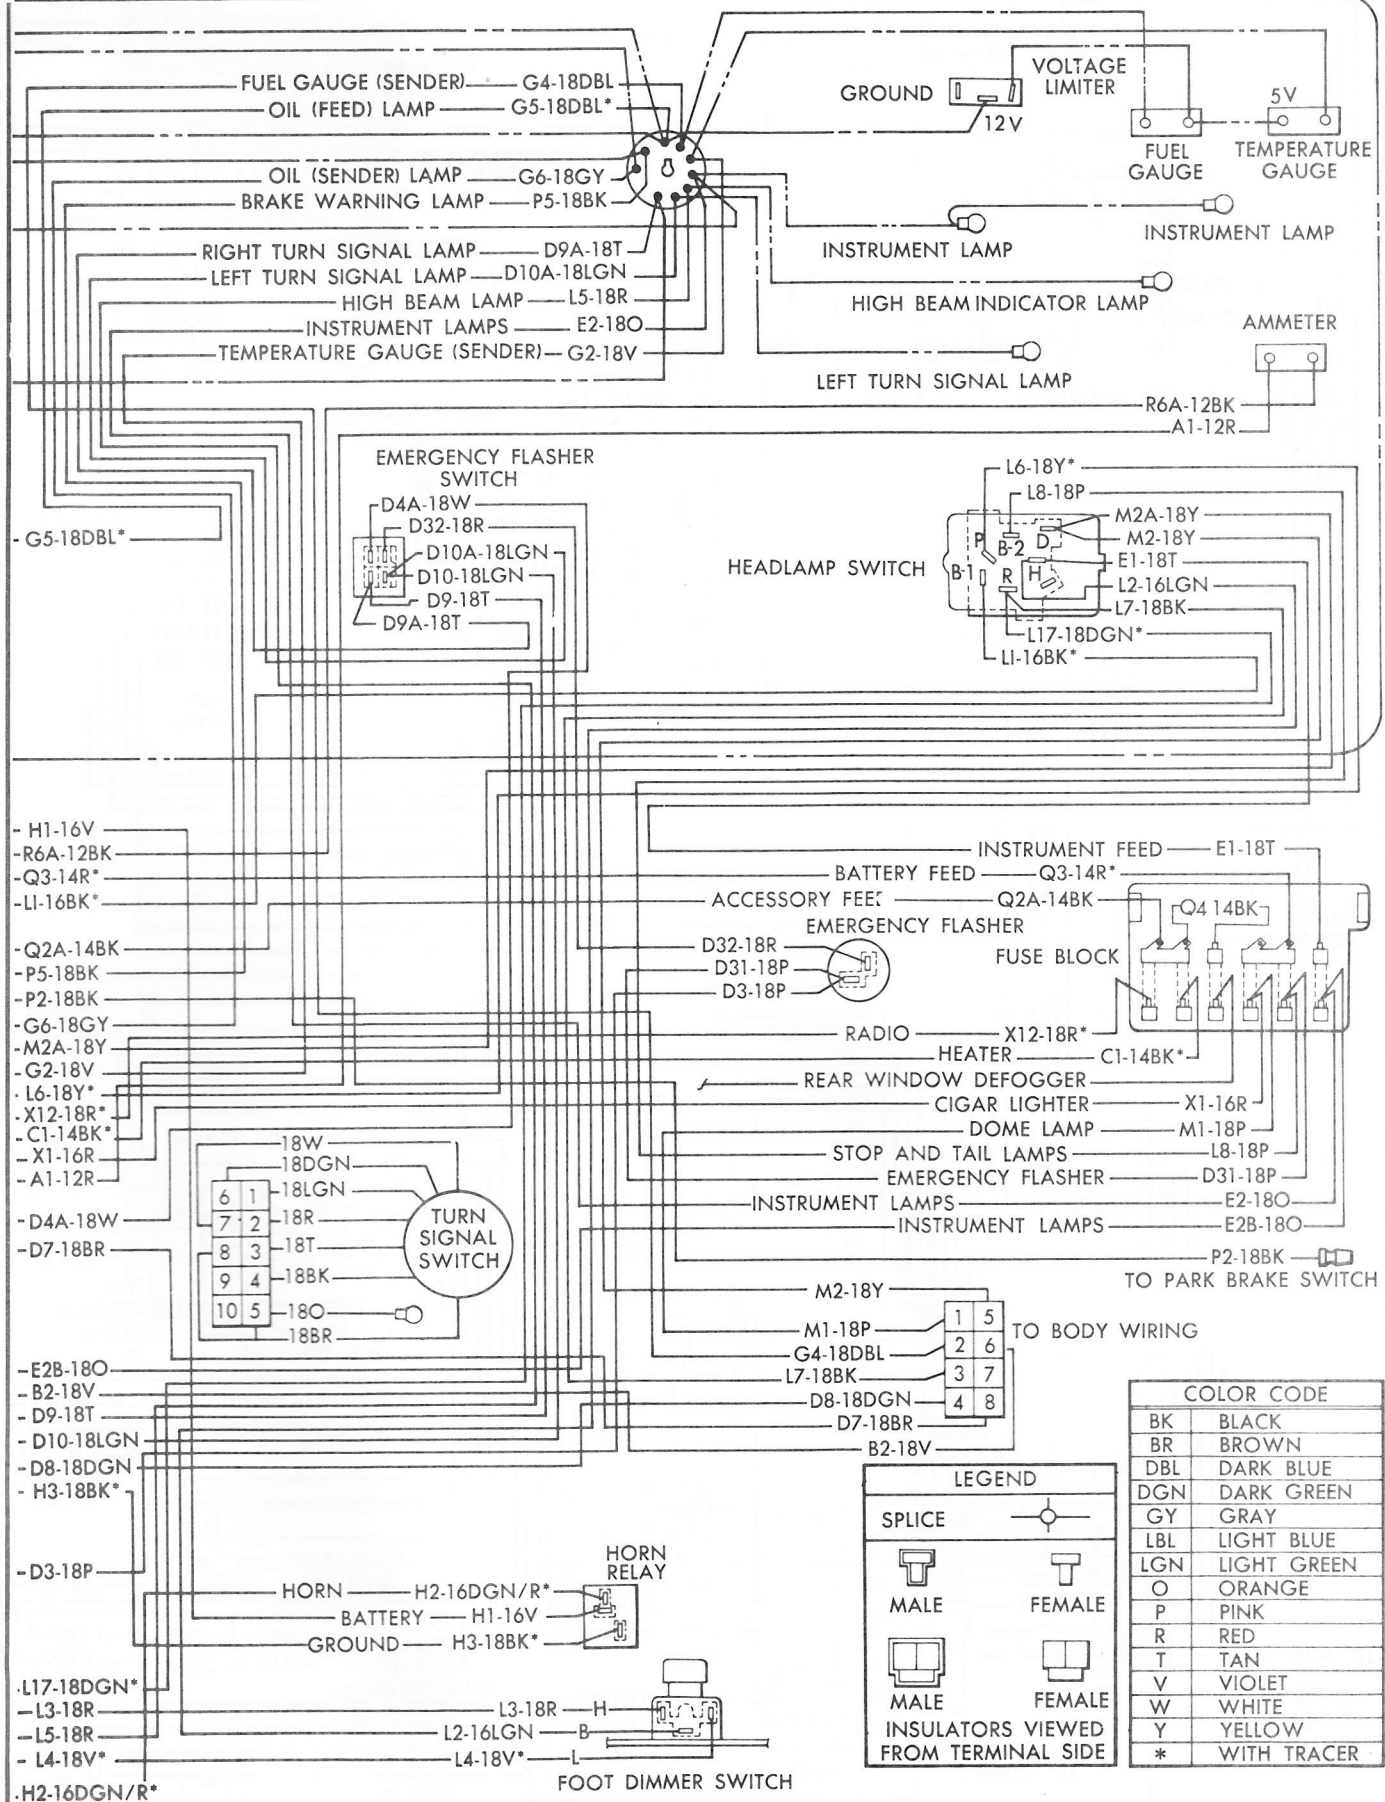 FUEL GAUGE (SENDER) G4-18DBL
OIL (FEED) LAMP G5-18DBL*
OIL (SENDER) LAMP G6-18GY
BRAKE WARNING LAMP P5-18BK
RIGHT TURN SIGNAL LAMP D9A-18T
LEFT TURN SIGNAL LAMP D10A-18LGN
HIGH BEAM LAMP L5-18R
INSTRUMENT LAMPS E2-18O
TEMPERATURE GAUGE (SENDER) G2-18V
GROUND
VOLTAGE
LIMITER
12V
5V
FUEL
GAUGE
TEMPERATURE
GAUGE
INSTRUMENT LAMP
INSTRUMENT LAMP
HIGH BEAM INDICATOR LAMP
AMMETER
LEFT TURN SIGNAL LAMP
R6A-12BK
A1-12R
EMERGENCY FLASHER
SWITCH
D4A-18W
D32-18R
D10A-18LGN
D10-18LGN
D9-18T
D9A-18T
G5-18DBL*
HEADLAMP SWITCH
P
B-2
D
B-1
R
H
L6-18Y*
L8-18P
M2A-18Y
M2-18Y
E1-18T
L2-16LGN
L7-18BK
L17-18DGN*
LI-16BK*
H1-16V
R6A-12BK
Q3-14R*
LI-16BK*
Q2A-14BK
P5-18BK
P2-18BK
G6-18GY
M2A-18Y
G2-18V
L6-18Y*
X12-18R*
C1-14BK*
X1-16R
A1-12R
D4A-18W
D7-18BR
INSTRUMENT FEED E1-18T
BATTERY FEED Q3-14R*
ACCESSORY FEE Q2A-14BK
Q4 14BK
EMERGENCY FLASHER
D32-18R
D31-18P
D3-18P
FUSE BLOCK
RADIO X12-18R*
HEATER C1-14BK*
REAR WINDOW DEFOGGER
CIGAR LIGHTER X1-16R
DOME LAMP M1-18P
STOP AND TAIL LAMPS L8-18P
EMERGENCY FLASHER D31-18P
INSTRUMENT LAMPS E2-18O
INSTRUMENT LAMPS E2B-18O
P2-18BK
TO PARK BRAKE SWITCH
18W
18DGN
6 1 18LGN
7 2 18R
8 3 18T
9 4 18BK
10 5 18O
18BR
TURN
SIGNAL
SWITCH
M2-18Y
M1-18P
G4-18DBL
L7-18BK
D8-18DGN
D7-18BR
B2-18V
1 5
2 6
3 7
4 8
TO BODY WIRING
E2B-18O
B2-18V
D9-18T
D10-18LGN
D8-18DGN
H3-18BK*
D3-18P
L17-18DGN*
L3-18R
L5-18R
L4-18V*
H2-16DGN/R*
HORN
RELAY
HORN H2-16DGN/R*
BATTERY H1-16V
GROUND H3-18BK*
L3-18R H
L2-16LGN B
L4-18V* L
FOOT DIMMER SWITCH
LEGEND
SPLICE
MALE FEMALE
MALE FEMALE
INSULATORS VIEWED
FROM TERMINAL SIDE
COLOR CODE
BK BLACK
BR BROWN
DBL DARK BLUE
DGN DARK GREEN
GY GRAY
LBL LIGHT BLUE
LGN LIGHT GREEN
O ORANGE
P PINK
R RED
T TAN
V VIOLET
W WHITE
Y YELLOW
* WITH TRACER